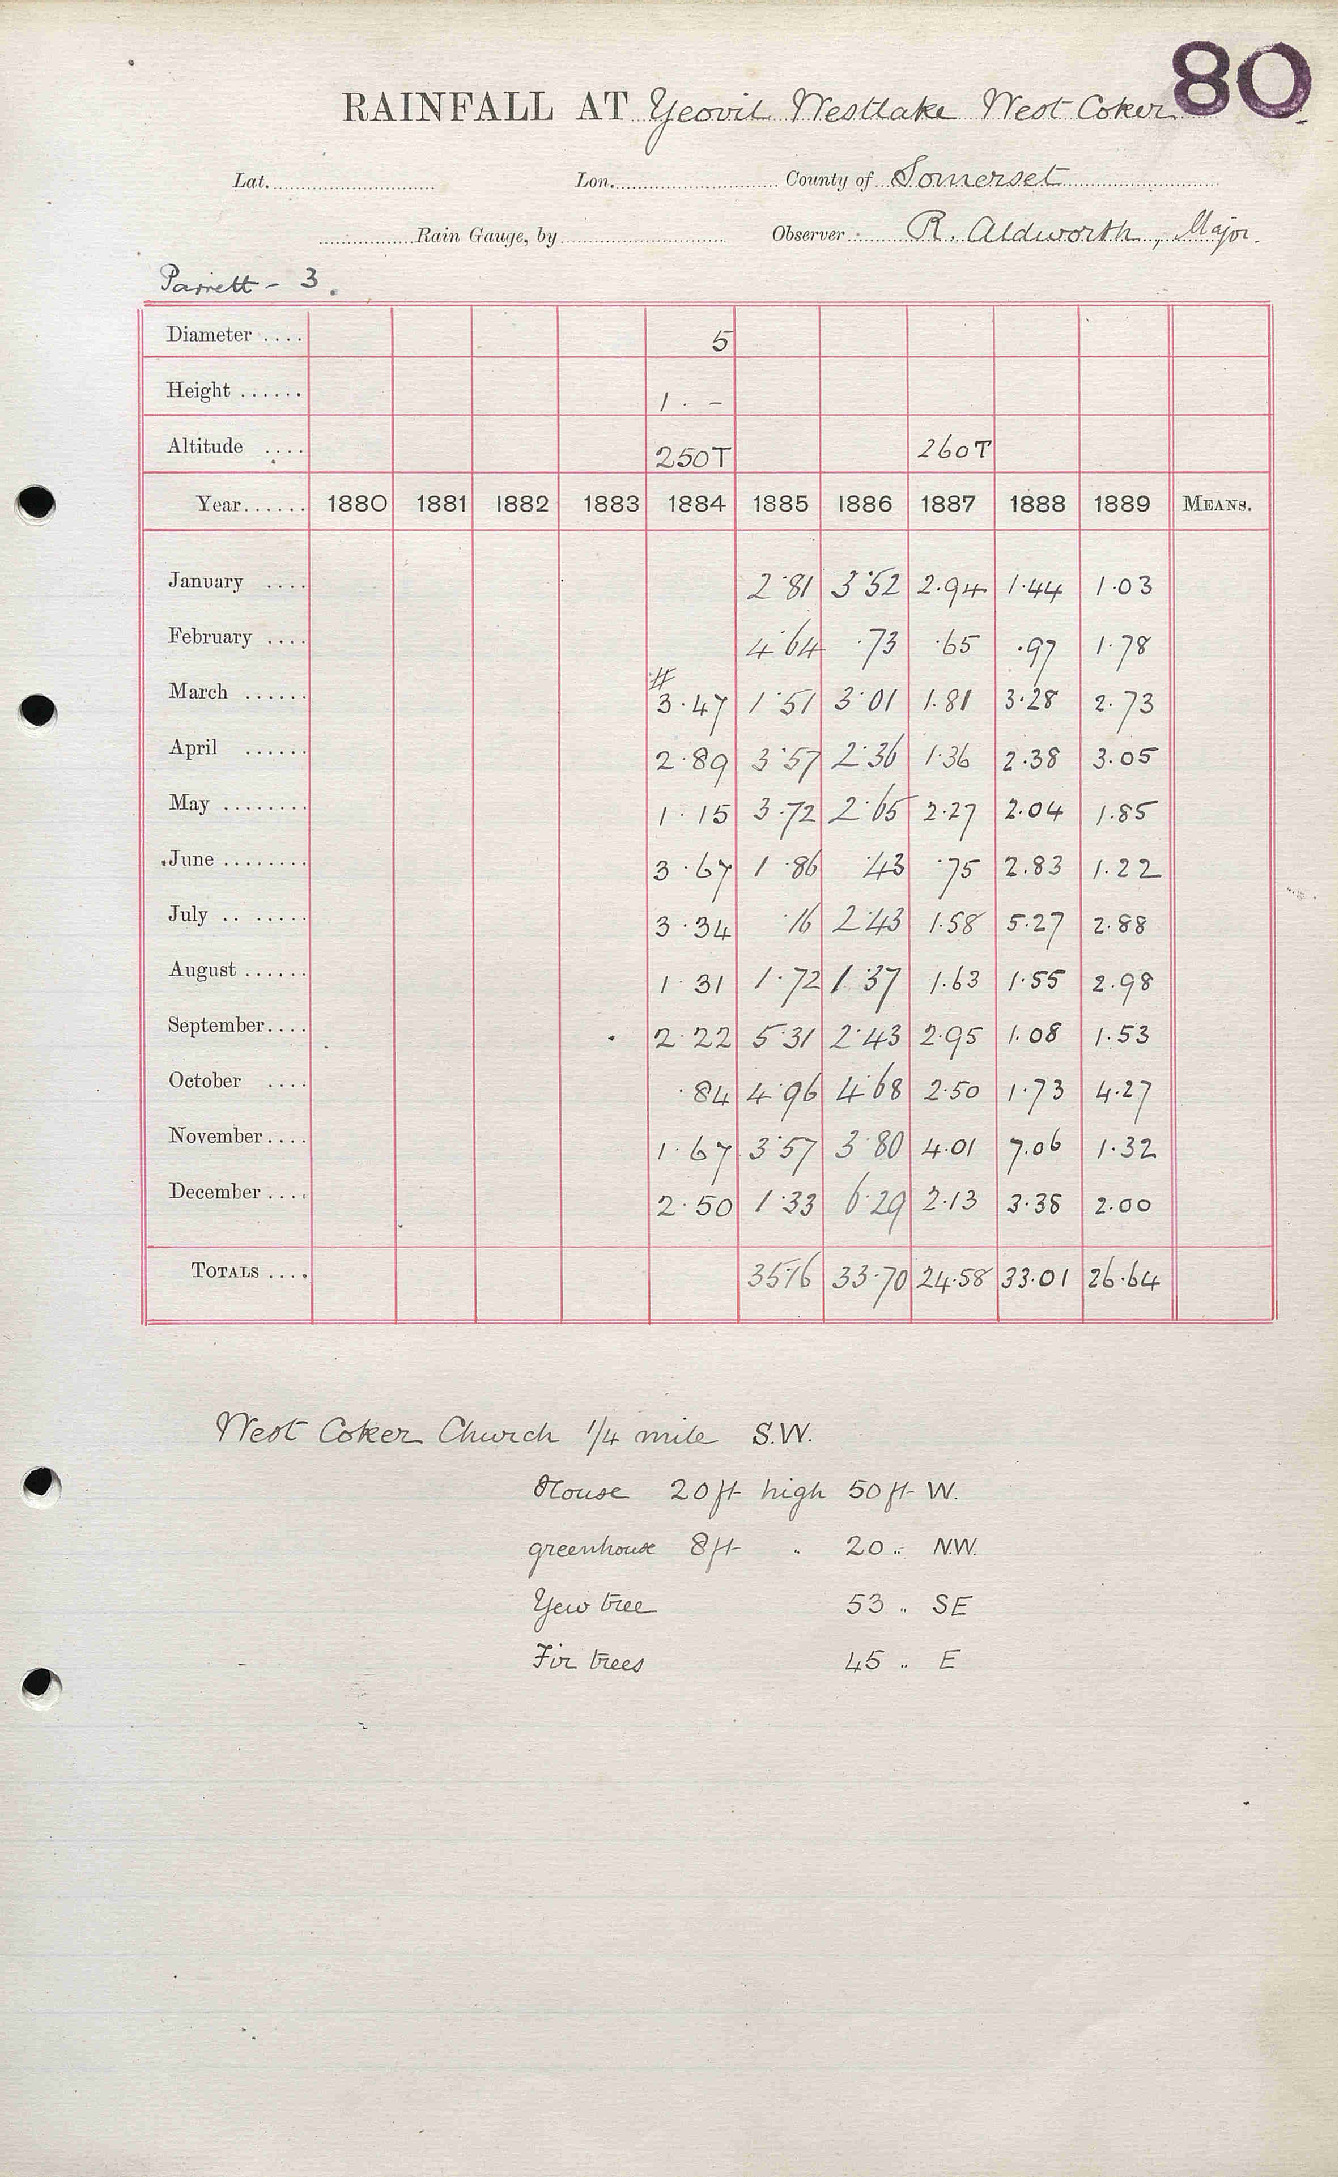 80
RAINFALL AT Yeovil Westlake West Coker
Lat. Lon. County of Somerset
Rain Gauge, by Observer R. Aldworth, Major.
Parrett - 3.
Diameter .... 5
Height ...... 1 . -
Altitude .... 250T 260T
Year...... 1880 1881 1882 1883 1884 1885 1886 1887 1888 1889 MEANS.
January .... 2.81 3.52 2.94 1.44 1.03
February .... 4.64 .73 .65 .97 1.78
#
March ...... 3.47 1.51 3.01 1.81 3.28 2.73
April ...... 2.89 3.57 2.36 1.36 2.38 3.05
May ........ 1.15 3.72 2.65 2.27 2.04 1.85
June ........ 3.67 1.86 .43 .75 2.83 1.22
July .. ..... 3.34 .16 2.43 1.58 5.27 2.88
August ...... 1.31 1.72 1.37 1.63 1.55 2.98
September.... 2.22 5.31 2.43 2.95 1.08 1.53
October .... .84 4.96 4.68 2.50 1.73 4.27
November.... 1.67 3.57 3.80 4.01 7.06 1.32
December .... 2.50 1.33 6.29 2.13 3.38 2.00
TOTALS .... 35.16 33.70 24.58 33.01 26.64
West Coker Church 1/4 mile S.W.
House 20 ft high 50 ft W.
greenhouse 8 ft " 20 " NW.
Yew tree 53 " SE
Fir trees 45 " E